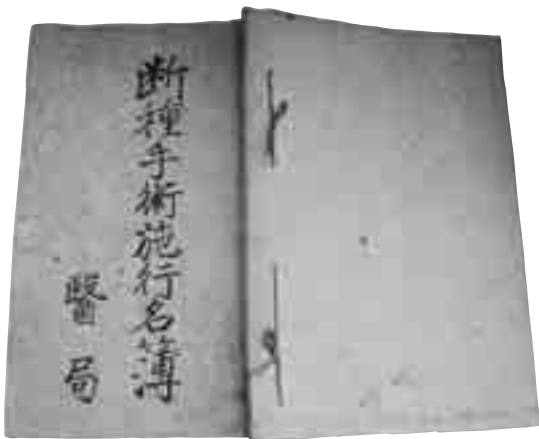 断種手術施行名簿
醫局